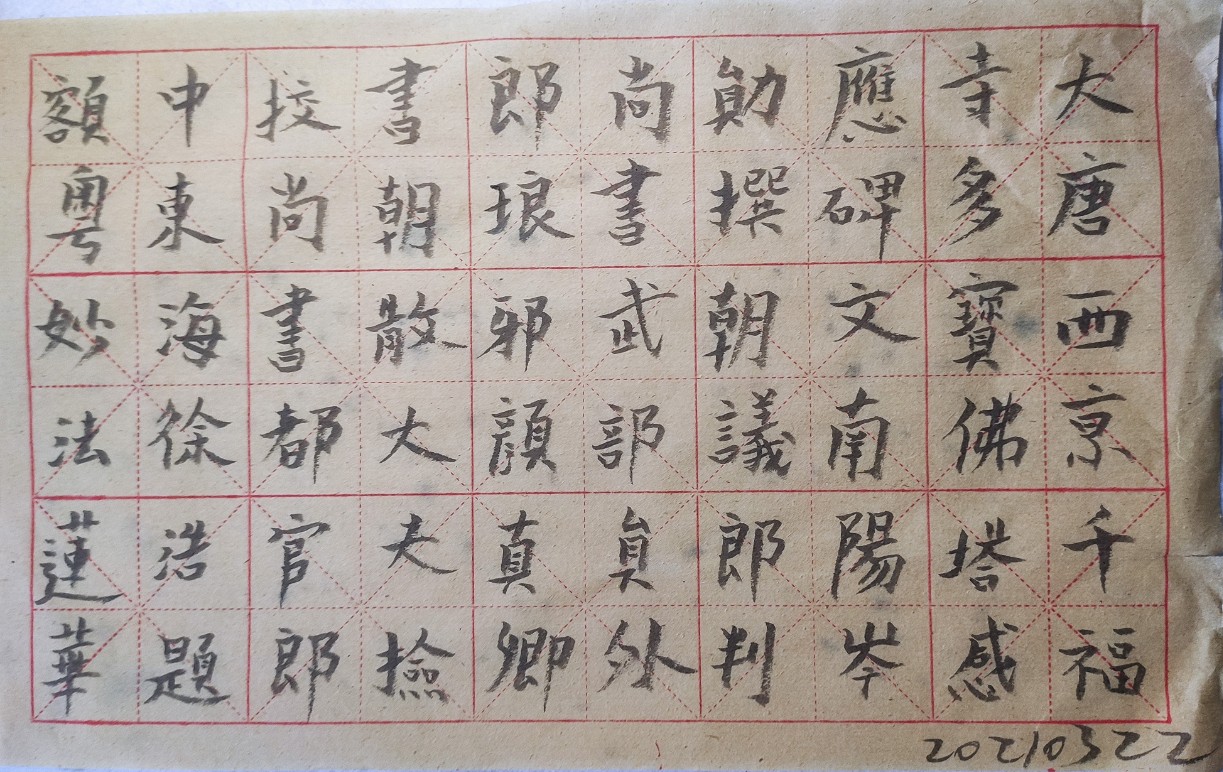 大唐西京千福
寺多寶佛塔感
應碑文南陽岑
勛撰朝議郎判
尚書武部員外
郎琅邪顏真卿
書朝散大夫撿
挍尚書都官郎
中東海徐浩題
額粵妙法蓮華
20210322